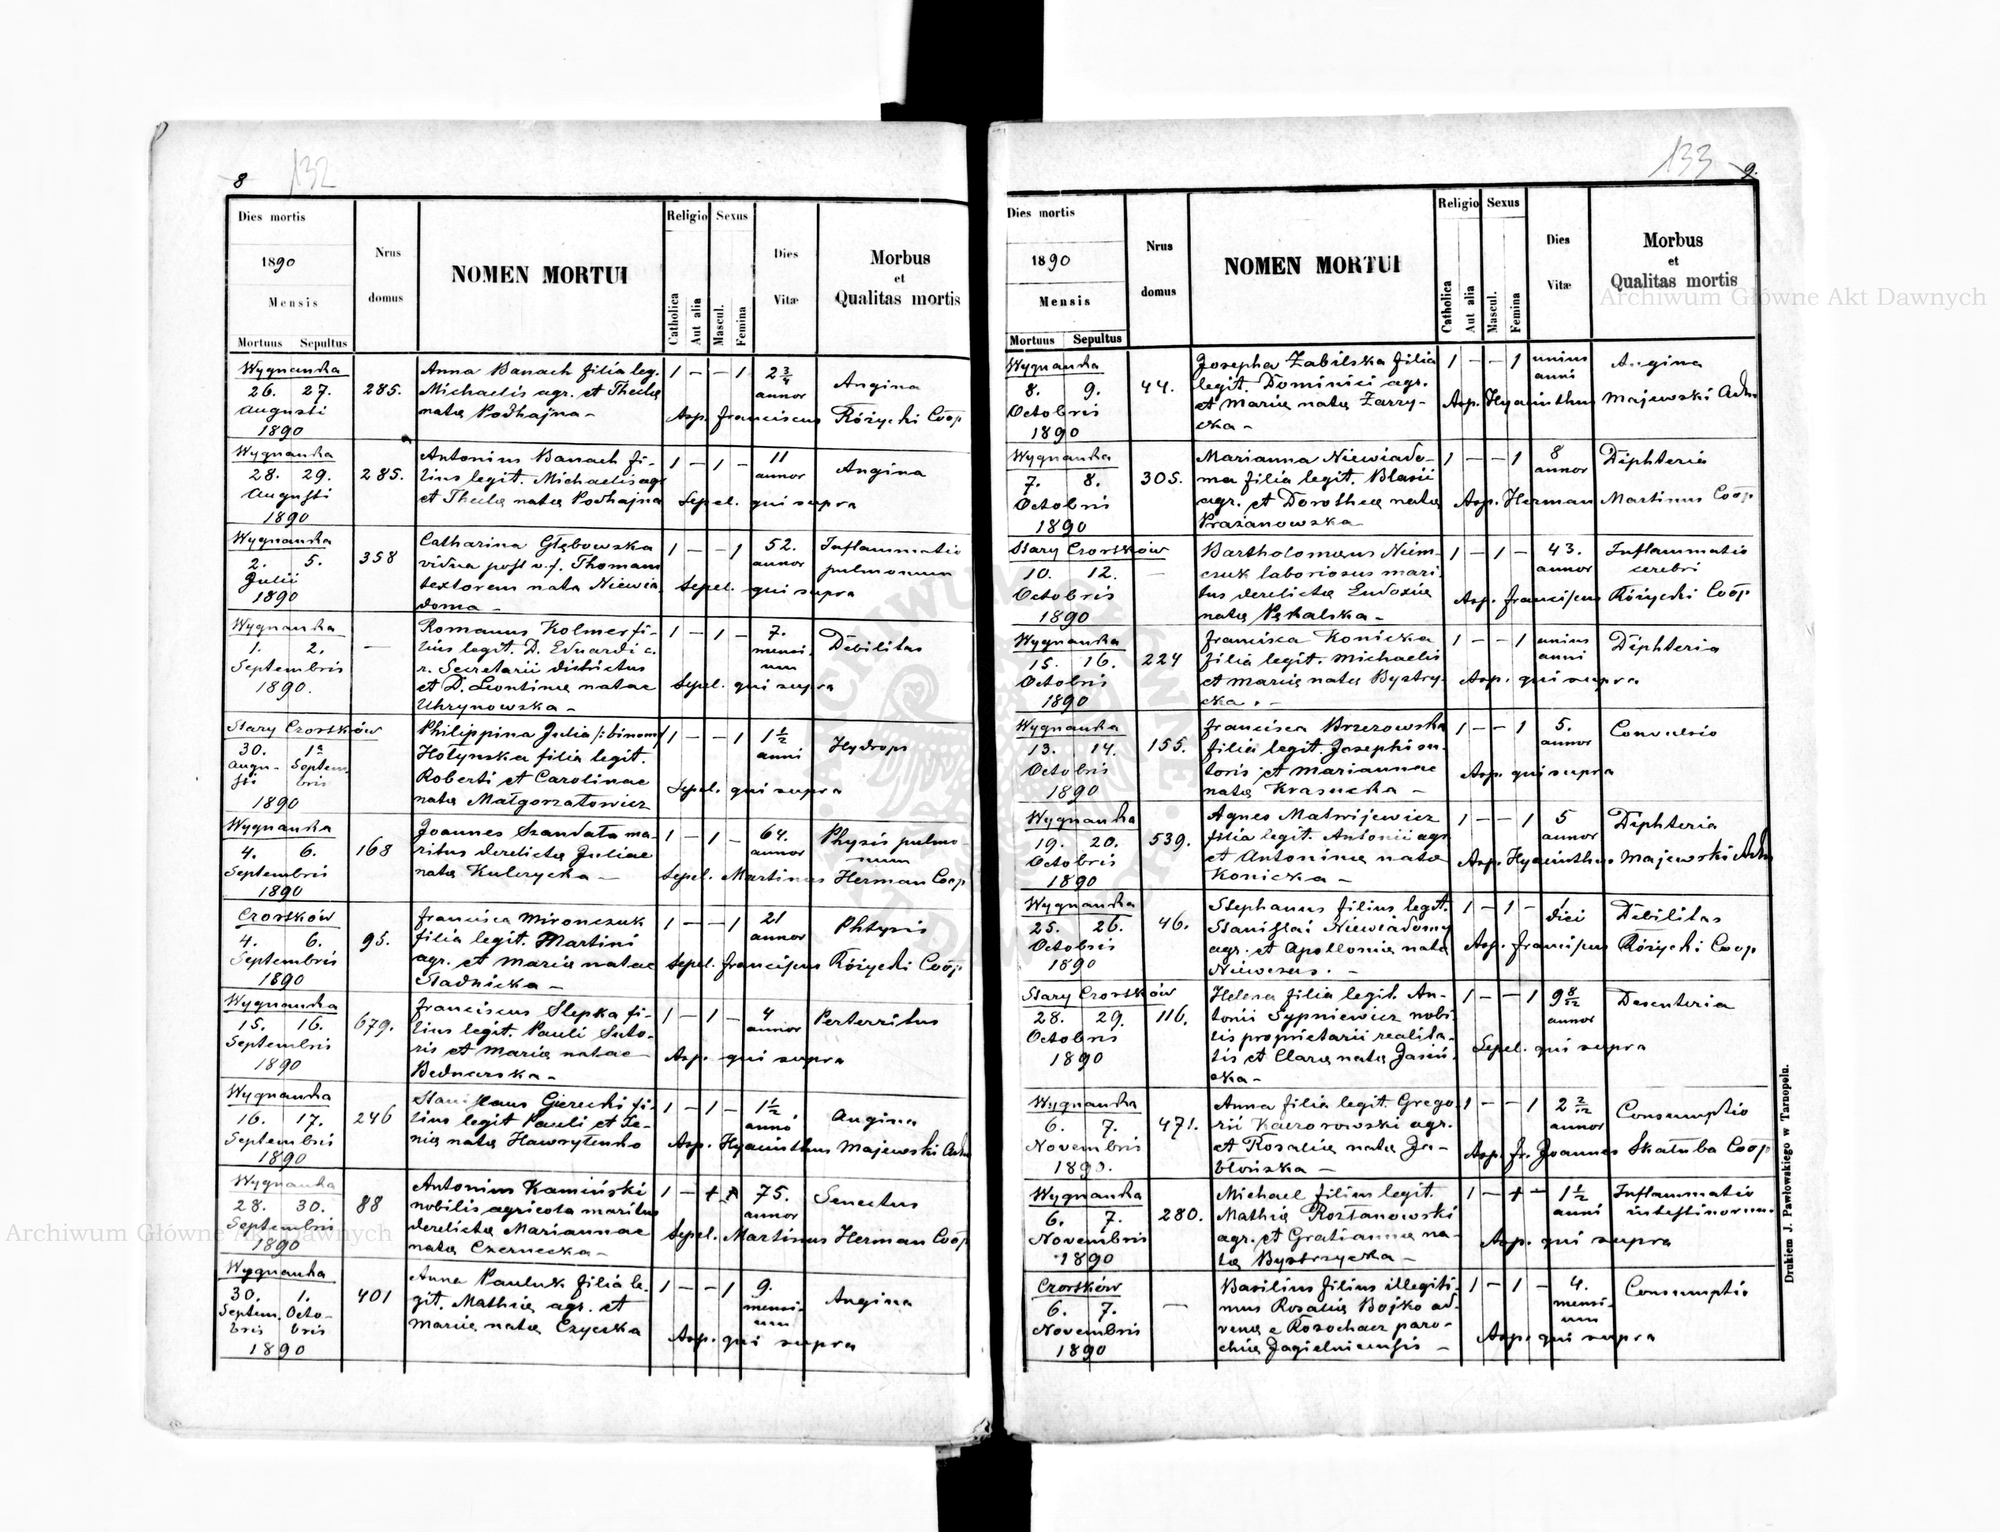 8 132
Dies mortis
1890
Mensis
Mortuus Sepultus
Nrus domus
NOMEN MORTUI
Religio Sexus
Catholica Aut alia Mascul. Femina
Dies Vitæ
Morbus et Qualitas mortis
Wygnanka
26. 27.
Augusti
1890
285.
Anna Banach filia leg.
Michaelis agr. et Theclæ
natæ Podhajna –
1 – – 1
2 3/4
annor
Angina
Asp. Franciscus Różycki Coop
Wygnanka
28. 29.
Augusti
1890
285.
Antonius Banach fi-
lius legit. Michaelis agr
et Theclæ natæ Podhajna
1 – 1 –
11
annor
Angina
Sepel. qui supra
Wygnanka
2. 5.
Julii
1890
358
Catharina Głębowska
vidua post v.f. Thomam
textorem nata Niewia
doma –
1 – – 1
52.
annor
Inflammatio
pulmonum
Sepel. qui supra
Wygnanka
1. 2.
Septembris
1890.
—
Romanus Kolmer fi-
lius legit. D. Eduardi c.
r. Secretarii districtus
et D. Leontinæ natae
Uhrynowska –
1 – 1 –
7.
mensi-
um
Debilitas
Sepel. qui supra
Stary Czortków
30. 1a
Augu- Septem
sti bris
1890
Philippina Julia /: binom/
Hołynska filia legit.
Roberti et Carolinae
natæ Małgorzatowicz
1 – – 1
1 1/2
anni
Hydrops
Sepel. qui supra
Wygnanka
4. 6.
Septembris
1890
168
Joannes Szandała ma-
ritus derelictæ Juliae
natæ Kulczycka –
1 – 1 –
64.
annor
Physis pulmo-
num
Sepel. Martinus Herman Coop
Czortków
4. 6.
Septembris
1890
95.
Francisca Mironczuk
filia legit. Martini
agr. et Mariæ natae
Stadnicka –
1 – – 1
21
annor
Phtysis
Sepel. Franciscus Różycki Coop
Wygnanka
15. 16.
Septembris
1890
679.
Franciscus Slepka fi-
lius legit. Pauli Suto-
ris et Mariæ natae
Bednarska –
1 – 1 –
4
annor
Perterritus
Asp. qui supra
Wygnanka
16. 17.
Septembris
1890
246
Stanislaus Gierecki fi-
lius legit Pauli et Xe-
niæ natæ Hawrylenko
1 – 1 –
1 1/2
anni
Angina
Asp. Hyacinthus Majewski Adm
Wygnanka
28. 30.
Septembris
1890
88
Antonius Kamiński
nobilis agricola maritus
derelictæ Mariannae
natæ Czernecka –
1 –
75.
annor
Senectus
Sepel. Martinus Herman Coop
Wygnanka
30. 1.
Septem Octo-
bris bris
1890
401
Anna Pauluk filia le-
git. Mathiæ agr. et
Mariæ natæ Czycska
1 – – 1
9.
mensi-
um
Angina
Asp. qui supra
133 9.
Dies mortis
1890
Mensis
Mortuus Sepultus
Nrus domus
NOMEN MORTUI
Religio Sexus
Catholica Aut alia Mascul. Femina
Dies Vitæ
Morbus et Qualitas mortis
Wygnanka
8. 9.
Octobris
1890
44.
Josepha Zabilska filia
legit. Dominici agr.
et Mariæ natæ Zarzy-
cka –
1 – – 1
unius
anni
Angina
Asp. Hyacinthus Majewski Adm
Wygnanka
7. 8.
Octobris
1890
305.
Marianna Niewiado-
ma filia legit. Blasii
agr. et Dorotheæ natæ
Prażanowska –
1 – – 1
8
annor
Diphteria
Asp. Herman Martinus Coop
Stary Czortków
10. 12.
Octobris
1890
—
Bartholomæus Niem-
czuk laboriosus mari-
tus derelictæ Eudoxiæ
natæ Pękalska –
1 – 1 –
43.
annor
Inflammatio
cerebri
Asp. Franciscus Różycki Coop
Wygnanka
15. 16.
Octobris
1890
224
Francisca Konicka
filia legit. Michaelis
et Mariæ natæ Bystry-
cka. –
1 – – 1
unius
anni
Diphteria
Asp. qui supra
Wygnanka
13. 14.
Octobris
1890
155.
Francisca Brzezowska
filia legit. Josephi su-
toris et Mariannae
natæ Krasucka –
1 – – 1
5.
annor
Convulsio
Asp. qui supra
Wygnanka
19. 20.
Octobris
1890
539.
Agnes Matwijewicz
filia legit. Antonii agr
et Antoninæ natæ
Konicka –
1 – – 1
5
annor
Diphteria
Asp. Hyacinthus Majewski Adm
Wygnanka
25. 26.
Octobris
1890
46.
Stephanus filius legit.
Stanislai Niewiadomy
agr. et Apolloniæ natæ
1 – 1 –
1
diei
Debilitas
Asp. Franciscus Różycki Coop
Stary Czortków
28. 29.
Octobris
1890
116.
Helena filia legit. An-
tonii Sypniewicz nobi-
lis proprietarii realita-
tis et Claræ natæ Jasiń-
cka –
1 – – 1
9 8/12
annor
Desenteria
Sepel. qui supra
Wygnanka
6. 7.
Novembris
1890.
471.
Anna filia legit. Grego-
rii Kaczorowski agr.
et Rosaliæ natæ Ja-
błońska –
1 – – 1
2 2/12
annor
Consumptio
Asp. fr. Joannes Skałuba Coop
Wygnanka
6. 7.
Novembris
1890
280.
Michael filius legit.
Mathiæ Roztanowski
agr. et Gratiannæ na-
tæ Bystrzycka –
1 – + –
1 1/2
anni
Inflammatio
intestinorum
Asp. qui supra
Czortków
6. 7.
Novembris
1890
—
Basilius filius illegiti-
mus Rosaliæ Bojko ad-
venæ e Rosochacz paro-
chiæ Jagielniensis –
1 – 1 –
4.
mensi-
um
Consumptio
Asp. qui supra
Drukiem J. Pawłowskiego w Tarnopolu.
Archiwum Główne Akt Dawnych
Archiwum Główne Akt Dawnych
ARCHIWUM GŁÓWNE AKT DAWNYCH